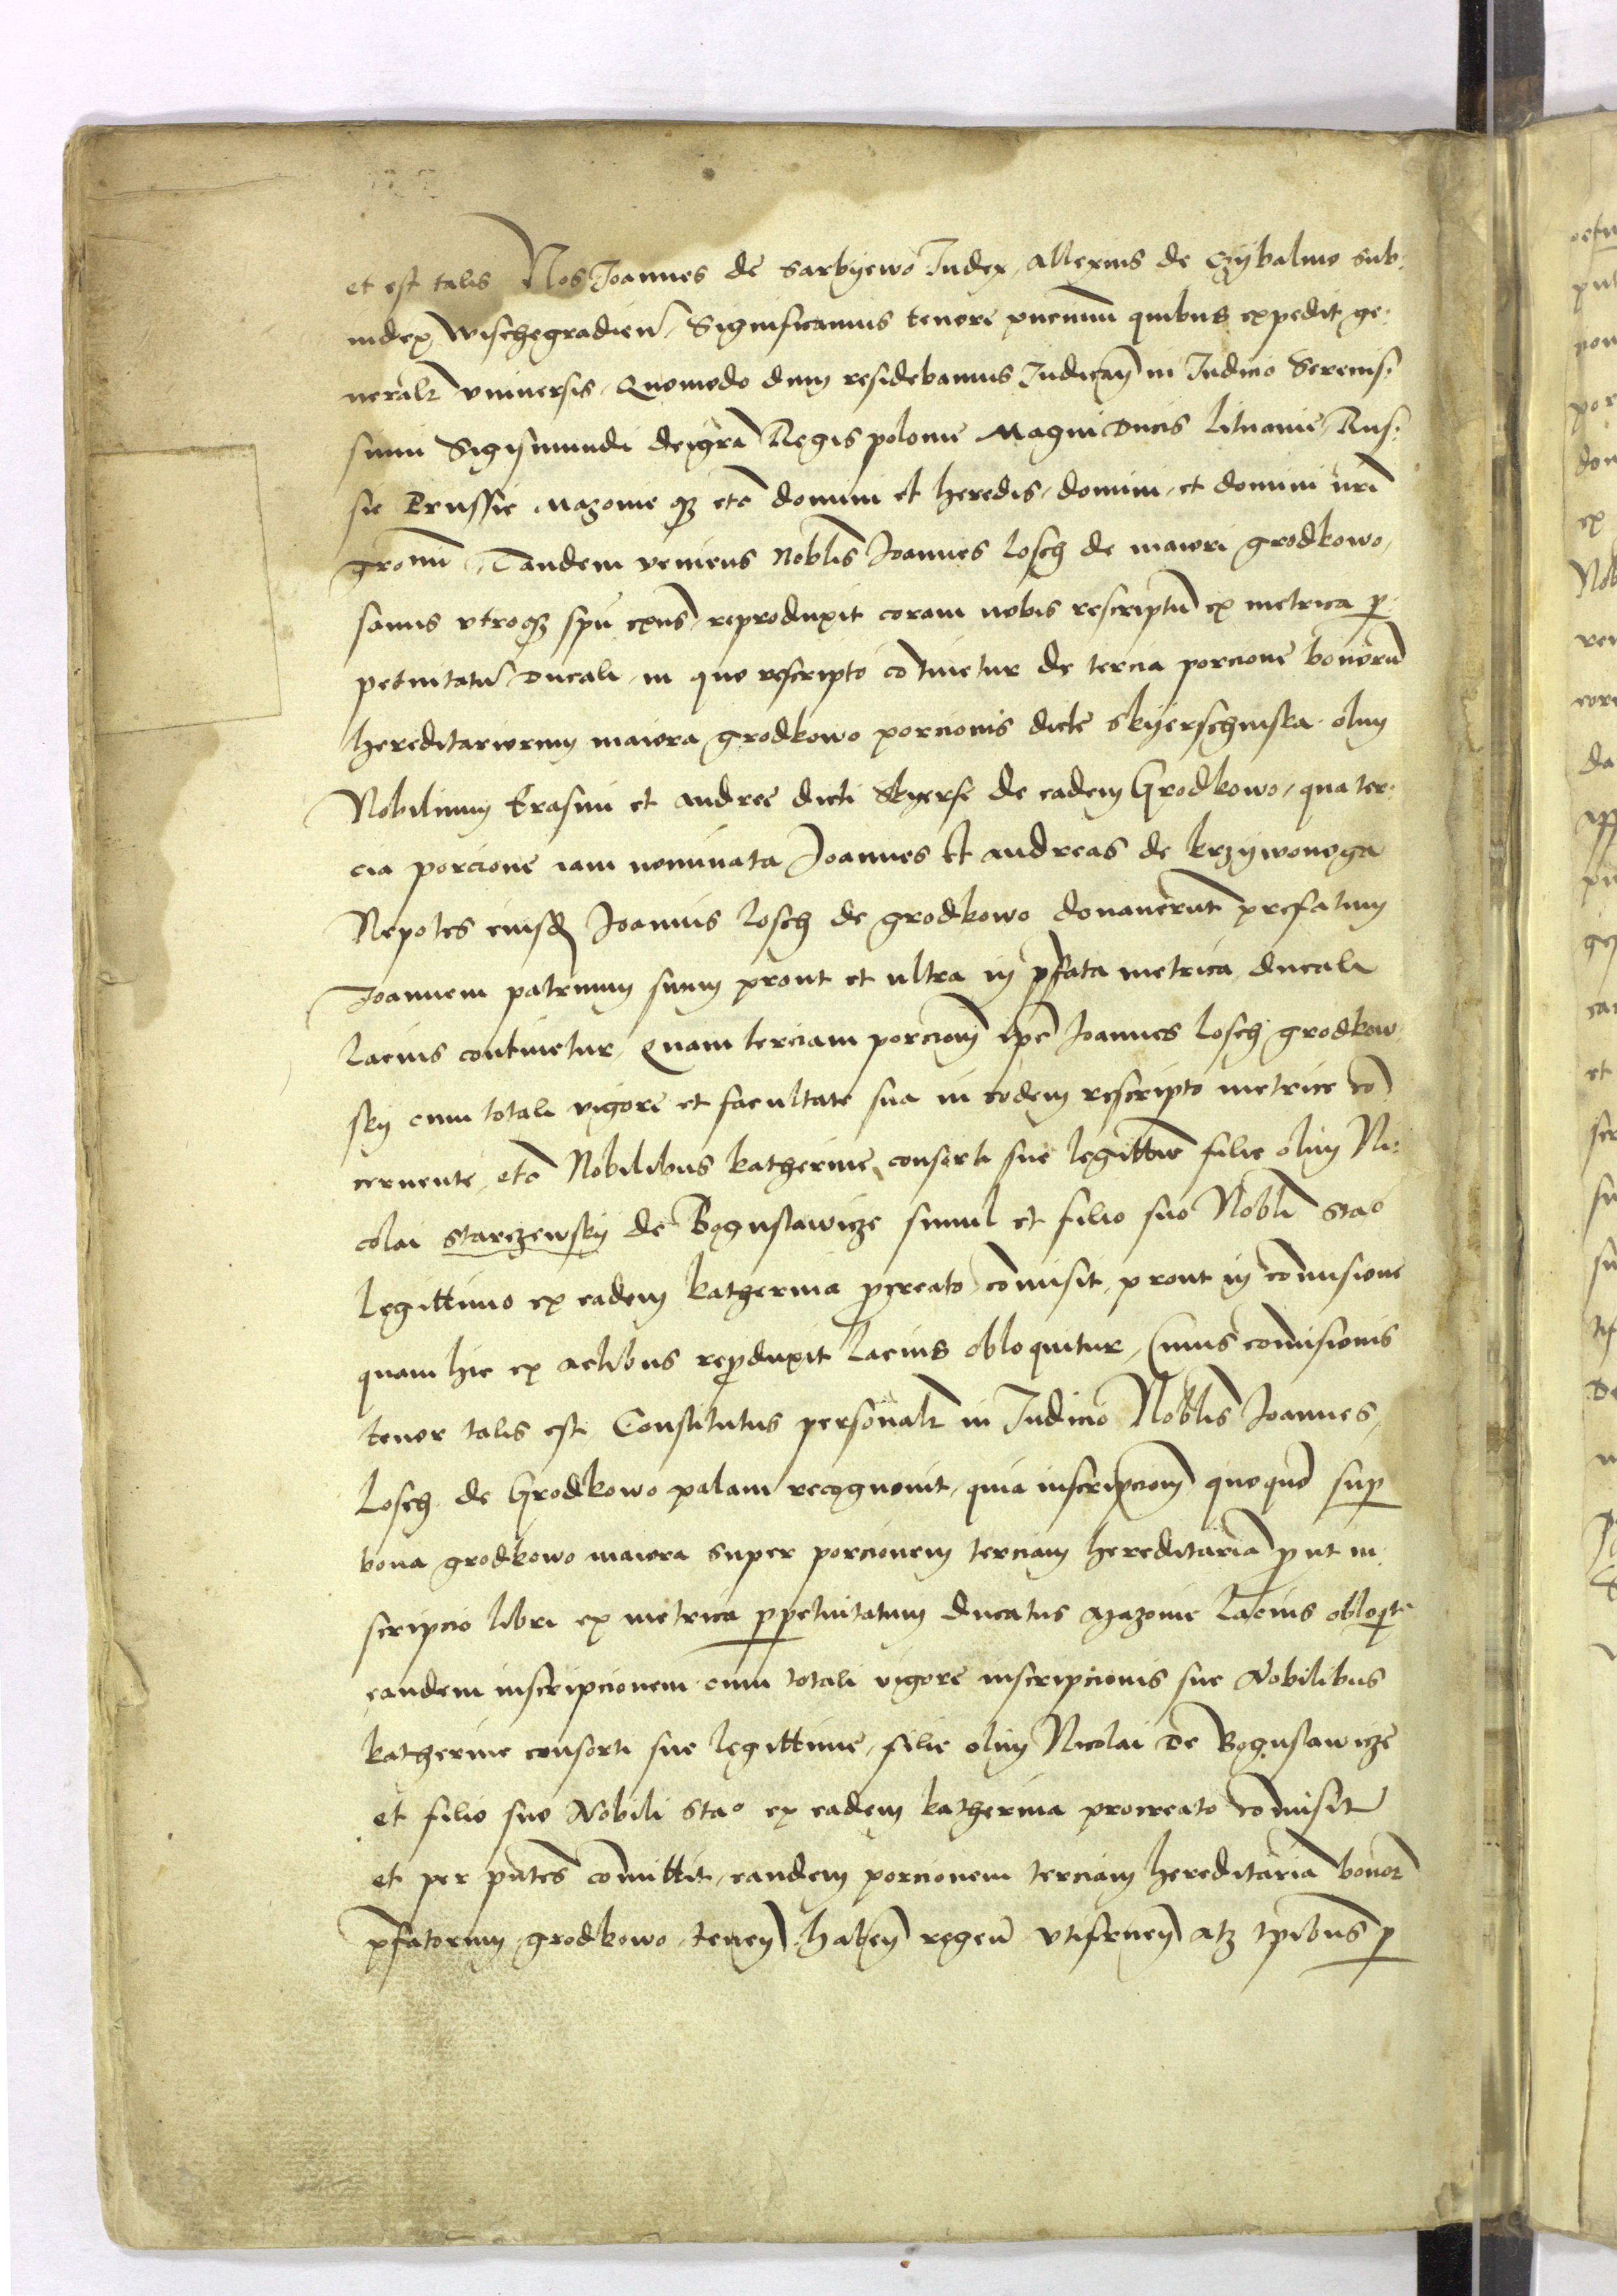 et est talis Nos Joannes de Sarbyewo Judex, Allexius de Czybalino sub:
iudex, Wischegradien̄, Significamus tenore pn̄cium quibus expedit ge:
neralr̄ vniuersis, Quomodo dum residebamus Judican̄ in Judicio Serenis:
simi Sigismundi dei gr̄a Regis polonie Magni Ducis lituanie, Rus:
sie Prussie Mazouie qȝ etc̄ domini et heredis, domini, et domini nr̄i
gr̄omi, Tandem veniens Nobl̄is Joannes Losch de maiori grodkowo,
sanus vtroqȝ sp̄u exn̄s, reproduxit coram nobis rescriptū ex metrica p̱
petuitatū Ducali, in quo rescripto cō̄tinetur de tercia porcione bonorū
hereditariorum maiora grodkowo porcionis dicte Skyerschinska olim
Nobilium Erasmi et andree dicti Skyersz de eadem Grodkowo, qua ter:
cia porcione iam nominata Joannes et andreas de krzywonoga
Nepotes eiusd̄ Joannis Losch de grodkowo donauerūt prefatum
Joannem patruum suum prout et ultra in p̄fata metrica ducali
lacius continetur, Quam terciam porcionē ip̄e Joannes Losch grodkow
sky cum totali vigore et facultate sua in eodem rescripto metrice cō
cernente, etc̄ Nobilibus katherine, consorti sue legittime filie olim Ni:
colai Starczewsky de Boguslawicze simul et filio suo Nobli Stao
legittimo ex eadem katherina p̱creato cōmisit, prout in cōmisione
quam hic ex actibus rep̱duxit lacius obloquitur, Cuius cōmisionis
tenor talis est Constitutus personalr̄ in Judicio Nobl̄is Joannes,
Losch de Grodkowo palam recognouit, quia inscripcionē quoque sup̱
bona grodkowo maiora super porcionem terciam hereditariā p̱ut in
scripcio libri ex metrica p̱petuitatum ducatus mazouie lacius obloqt̄
eandem inscripcionem cum totali vigore inscripcionis sue Nobilibus
katherine consorti sue legittime, filie olim Nicolai de Boguslawicze
et filio suo Nobili Stao ex eadem katherina procreato cōmisit
et per pn̄tes cōmittit, eandem porcionem terciam hereditariā bonor̄
p̄fatorum grodkowo, tenen̄ haben̄ regen̄ vtifruen̄ atȝ tp̄ibus p̱